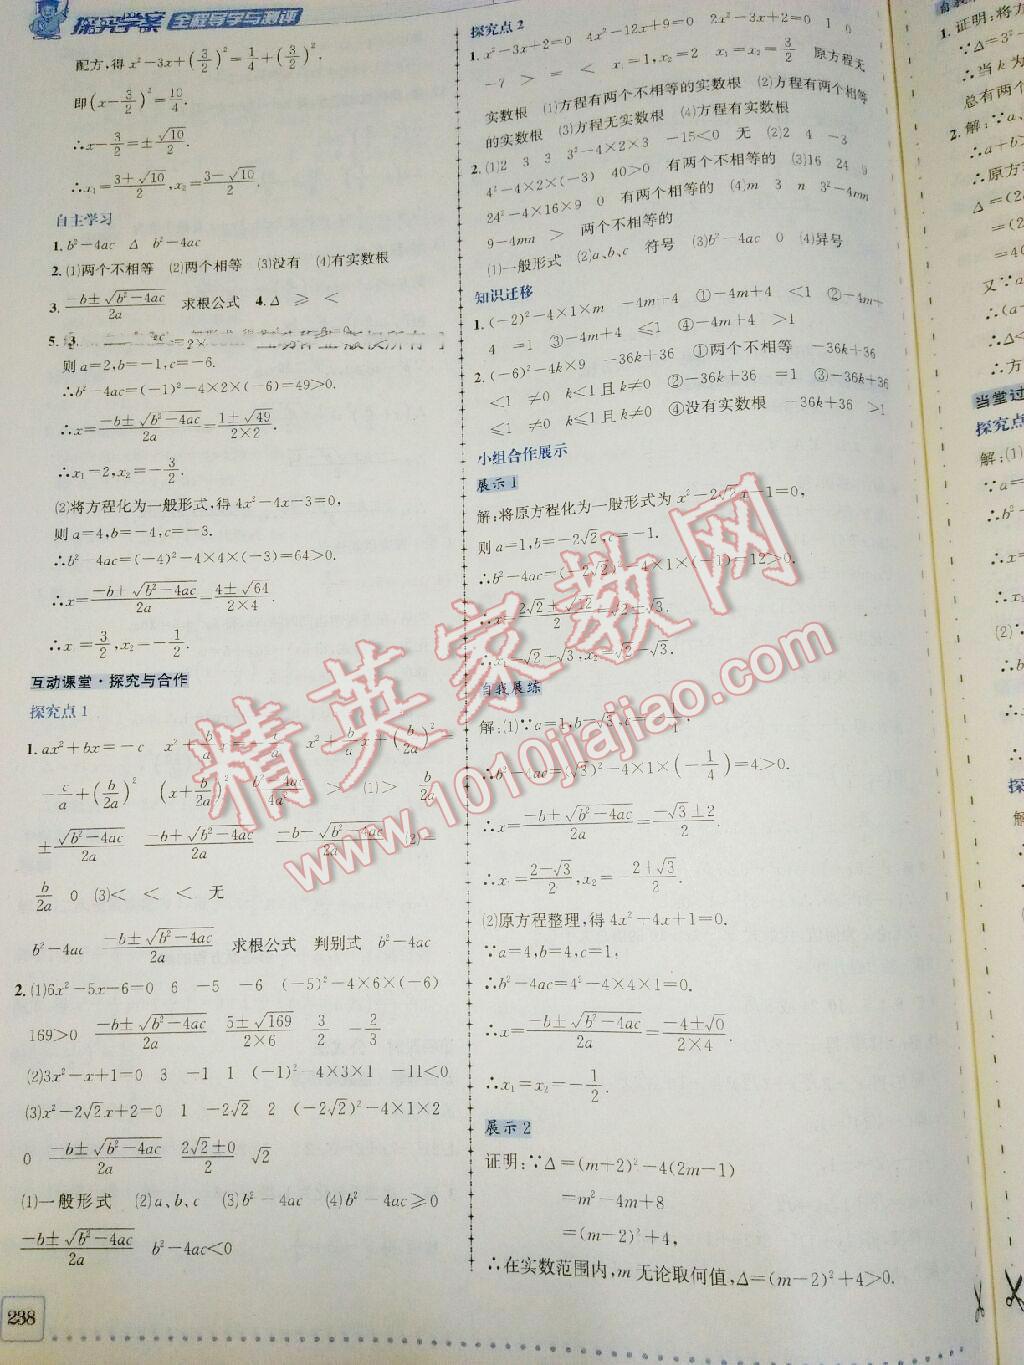 探究学案 全程导学与测评
配方,得x²-3x+(3/2)²=1/4+(3/2)².
即(x-3/2)²=10/4.
∴x-3/2=±√10/2.
∴x₁=(3+√10)/2,x₂=(3-√10)/2.
自主学习
1. b²-4ac Δ b²-4ac
2. (1)两个不相等 (2)两个相等 (3)没有 (4)有实数根
3. (-b±√(b²-4ac))/2a 求根公式 4. Δ ≥ <
则a=2,b=-1,c=-6.
∴b²-4ac=(-1)²-4×2×(-6)=49>0.
∴x=(-b±√(b²-4ac))/2a=(1±√49)/(2×2).
∴x₁=2,x₂=-3/2.
(2)将方程化为一般形式,得4x²-4x-3=0,
则a=4,b=-4,c=-3.
∴b²-4ac=(-4)²-4×4×(-3)=64>0.
∴x=(-b±√(b²-4ac))/2a=(4±√64)/(2×4).
∴x₁=3/2,x₂=-1/2.
互动课堂·探究与合作
探究点1
1. ax²+bx=-c x²+(b/a)x=-c/a x²+(b/a)x+(b/2a)²=
-c/a+(b/2a)² (x+b/2a)²=(b²-4ac)/4a² > (1)> b/2a
±√(b²-4ac)/2a (-b+√(b²-4ac))/2a (-b-√(b²-4ac))/2a (2)=
b/2a 0 (3)< < < 无
b²-4ac (-b±√(b²-4ac))/2a 求根公式 判别式 b²-4ac
2. (1)6x²-5x-6=0 6 -5 -6 (-5)²-4×6×(-6)
169>0 (-b±√(b²-4ac))/2a (5±√169)/(2×6) 3/2 -2/3
(2)3x²-x+1=0 3 -1 1 (-1)²-4×3×1 -11<0
(3)x²-2√2x+2=0 1 -2√2 2 (-2√2)²-4×1×2
0 (-b±√(b²-4ac))/2a (2√2±0)/2 √2
(1)一般形式 (2)a、b、c (3)b²-4ac (4)b²-4ac≥0
(-b±√(b²-4ac))/2a b²-4ac<0
238
探究点2
1. x²-3x+2=0 4x²-12x+9=0 2x²-3x+2=0 1 0
-7 > = < x₁=1,x₂=2 x₁=x₂=3/2 原方程无
实数根 (1)方程有两个不相等的实数根 (2)方程有两个相等
的实数根 (3)方程无实数根 (4)方程有实数根
2. (1)2 3 3 3²-4×2×3 -15<0 无 (2)2 4 -3
4²-4×2×(-3) 40>0 有两个不相等的 (3)16 24 9
24²-4×16×9 0 有两个相等的 (4)m 3 n 3²-4mn
9-4mn > 两个不相等的
(1)一般形式 (2)a、b、c 符号 (3)b²-4ac 0 (4)异号
知识迁移
1. (-2)²-4×1×m -4m+4 ①-4m+4 <1 ②-4m+
4 =1 ③-4m+4 ≤1 ④-4m+4 >1
2. (-6)²-4k×9 -36k+36 ①两个不相等 -36k+36
<1 ≠0 k<1且k≠0 ②-36k+36 =1 ③-36k+36
≤1 ≠0 k≤1且k≠0 ④没有实数根 -36k+36 >1
小组合作展示
展示1
解:将原方程化为一般形式为x²-2√2x-1=0,
则a=1,b=-2√2,c=-1.
∴b²-4ac=(-2√2)²-4×1×(-1)=12>0.
∴x=(2√2±√12)/2=√2±√3.
∴x₁=√2+√3,x₂=√2-√3.
自我展练
解:(1)∵a=1,b=√3,c=-1/4,
∴b²-4ac=(√3)²-4×1×(-1/4)=4>0.
∴x=(-b±√(b²-4ac))/2a=(-√3±2)/2.
∴x₁=(2-√3)/2,x₂=-(2+√3)/2.
(2)原方程整理,得4x²-4x+1=0.
∵a=4,b=4,c=1,
∴b²-4ac=4²-4×4×1=0.
∴x=(-b±√(b²-4ac))/2a=(-4±√0)/(2×4).
∴x₁=x₂=-1/2.
展示2
证明:∵Δ=(m+2)²-4(2m-1)
=m²-4m+8
=(m-2)²+4,
∴在实数范围内,m无论取何值,Δ=(m-2)²+4>0.
1. 证明:将方
∵Δ=3²-
∴当k为
总有两个
2. 解:∵a、
∴a+b>
∴原方
Δ=(2
=(2
=4
又∵a
∴(a
∴Δ<
∴方
当堂过
探究点
解:(1)
∵a=
∴b²-
∴x=
∴x₁
(2)∵
∴b
精英家教网
www.1010jiajiao.com